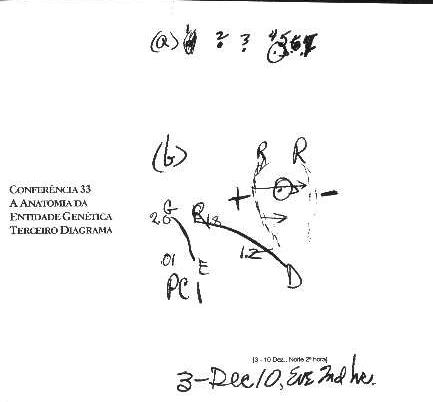 (a) 1 2 3 4 5 6 7
(b)
R R
+ -
CONFERÊNCIA 33
A ANATOMIA DA
ENTIDADE GENÉTICA
TERCEIRO DIAGRAMA
G R 18
20
1.2
.01 E D
PC 1
[3 - 10 Dez., Noite 2ª hora]
3-Dec 10, Eve 2nd hr.